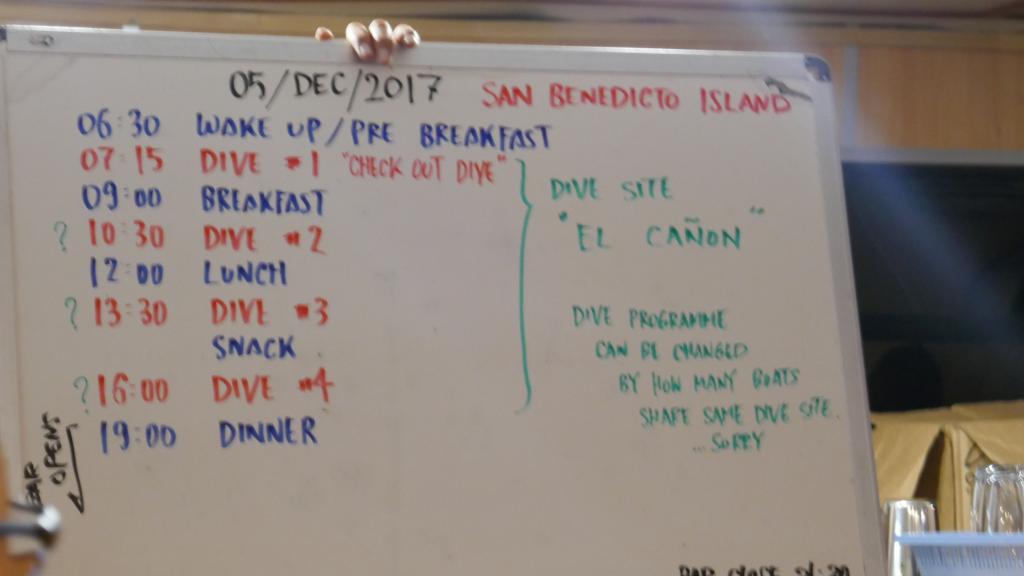 05/DEC/2017 SAN BENEDICTO ISLAND
06:30 WAKE UP / PRE BREAKFAST
07:15 DIVE #1 "CHECK OUT DIVE"
09:00 BREAKFAST
? 10:30 DIVE #2
12:00 LUNCH
? 13:30 DIVE #3
SNACK
? 16:00 DIVE #4
19:00 DINNER
BAR
OPENS
DIVE SITE
"EL CAÑON"
DIVE PROGRAMME
CAN BE CHANGED
BY HOW MANY BOATS
SHARE SAME DIVE SITE.
...SORRY